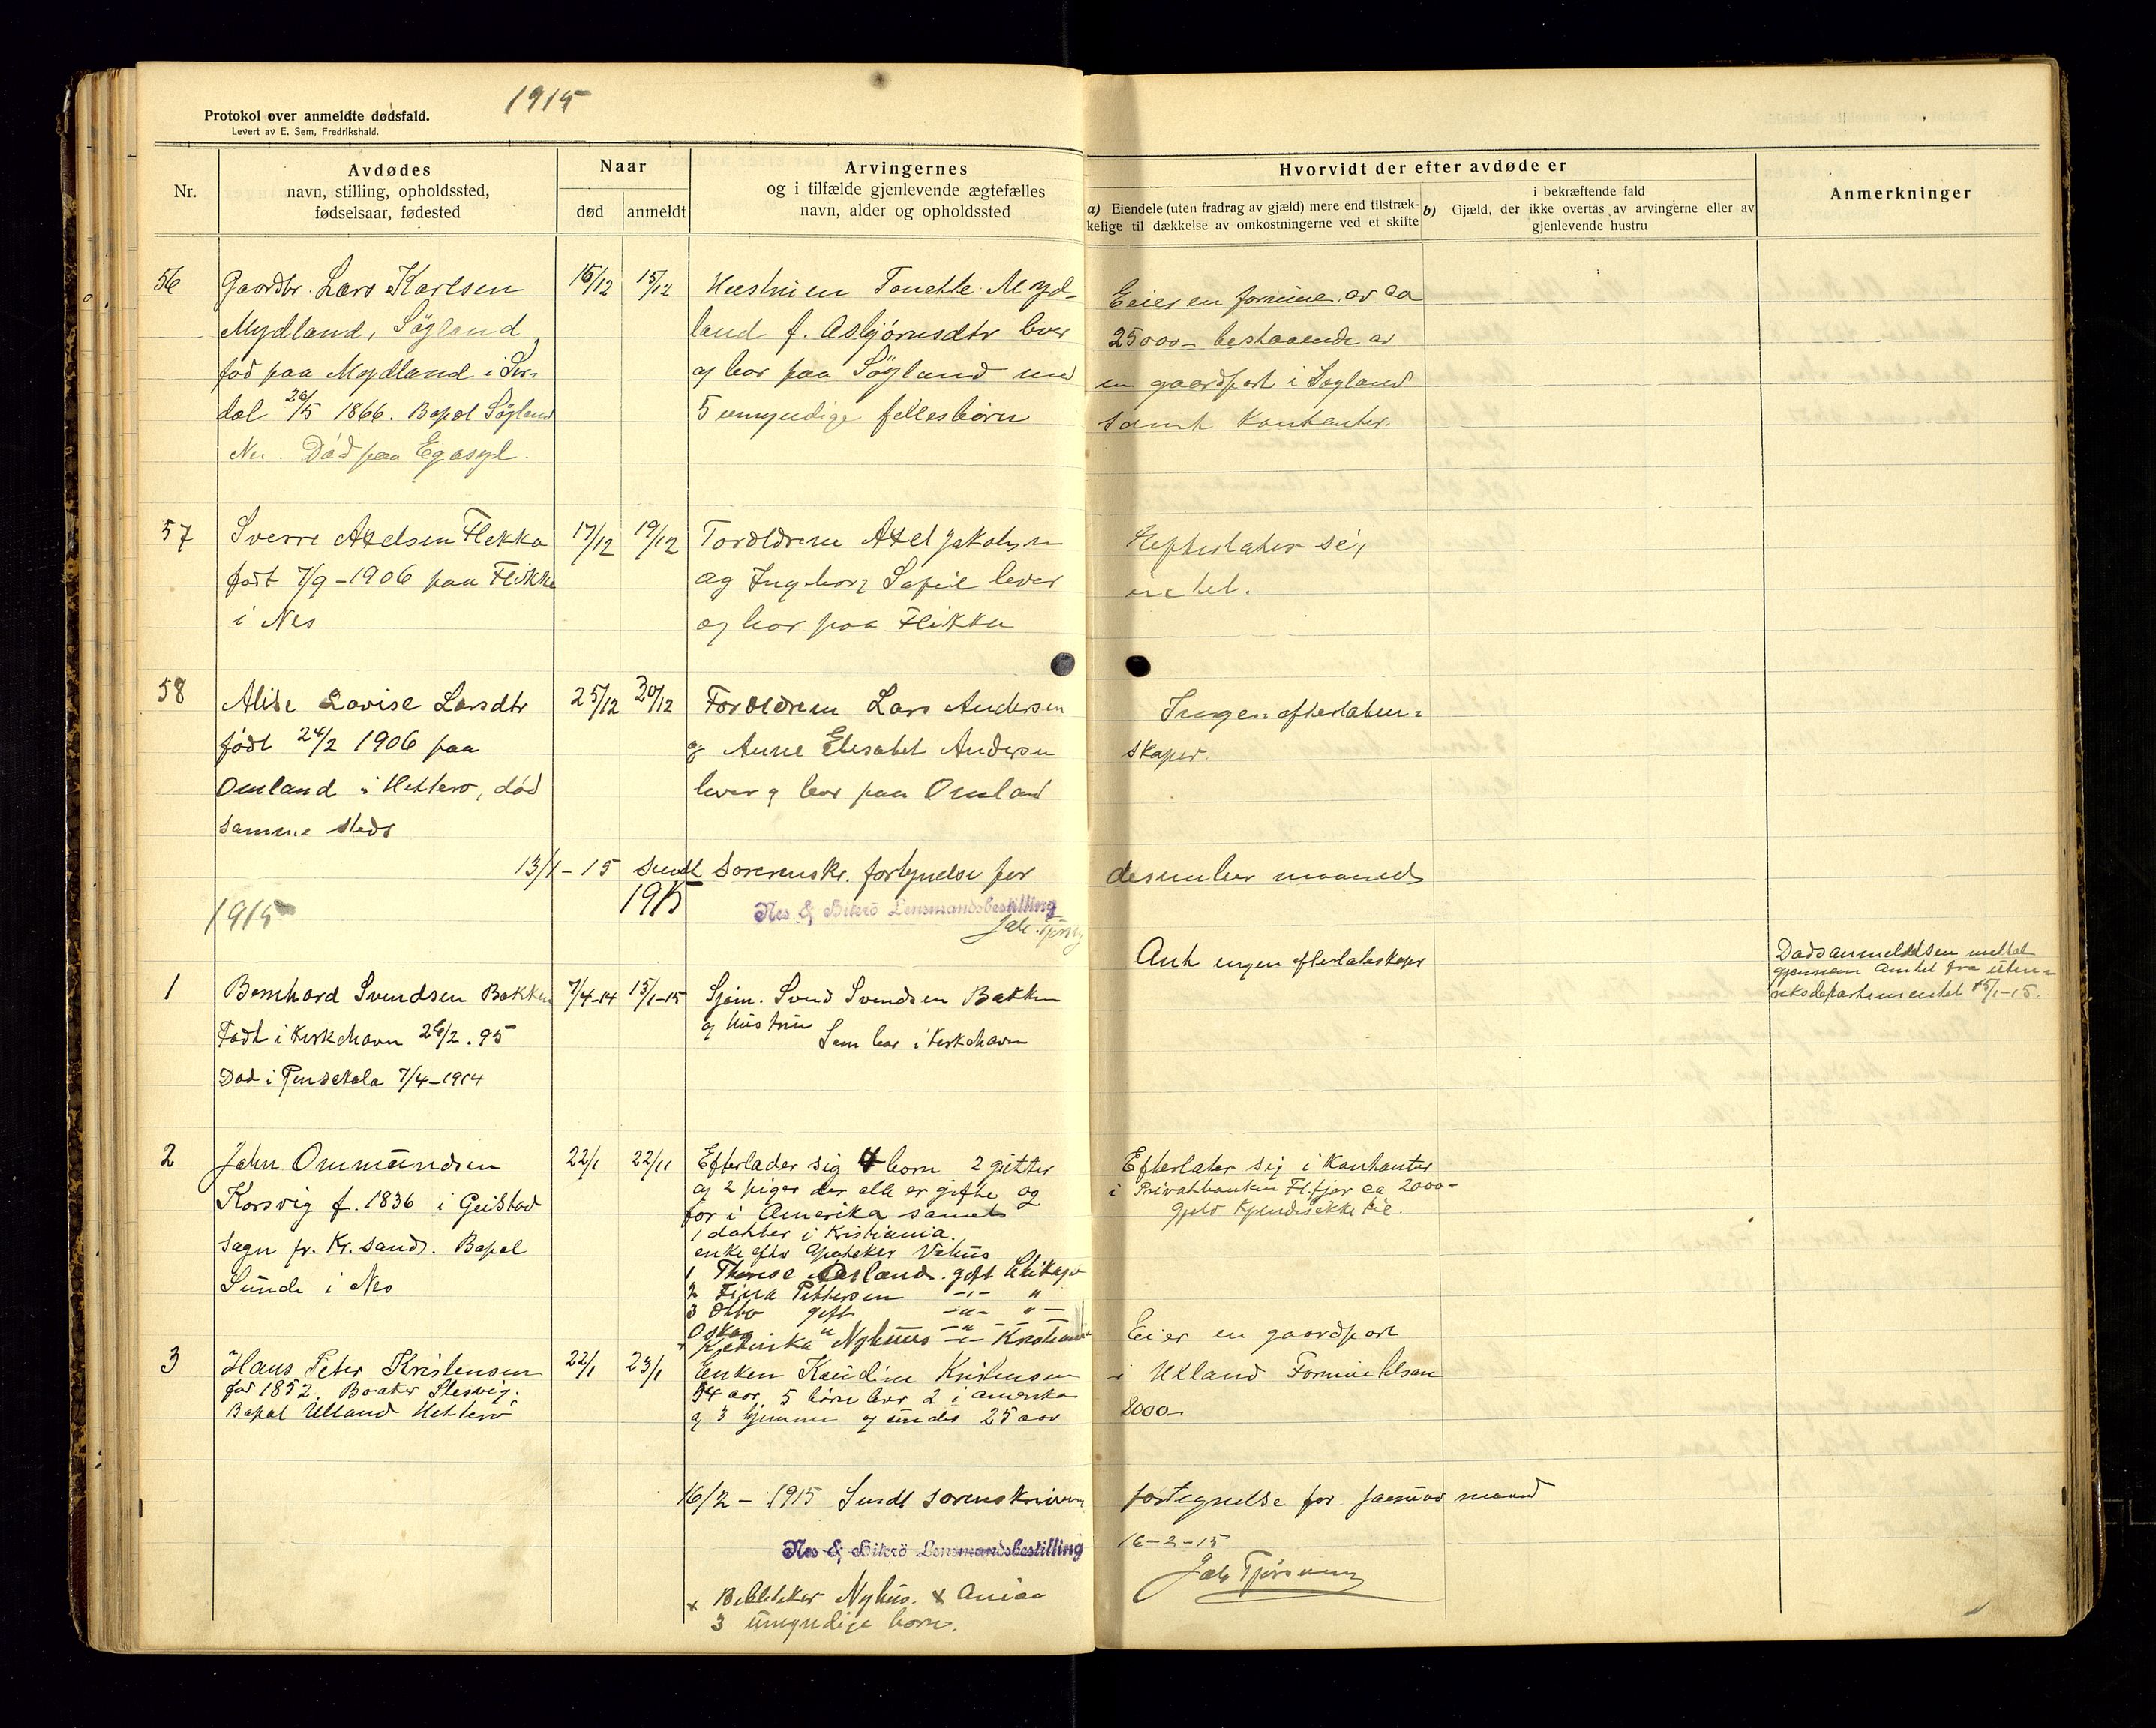 1915
Protokol over anmeldte dødsfald.
Levert av E. Sem, Fredrikshald.
Nr.
Avdødes
navn, stilling, opholdssted,
fødselsaar, fødested
Naar
død
anmeldt
Arvingernes
og i tilfælde gjenlevende ægtefælles
navn, alder og opholdssted
Hvorvidt der efter avdøde er
a) Eiendele (uten fradrag av gjæld) mere end tilstræk-
kelige til dækkelse av omkostningerne ved et skifte
i bekræftende fald
b) Gjæld, der ikke overtas av arvingerne eller av
gjenlevende hustru
Anmerkninger
56
Gaardbr. Lars Karlsen
Mydland, Søyland
fød paa Mydland i Sir-
dal 26/5 1866. Bopæl Søyland
Nes. Død paa
15/12
15/12
Hustruen Tonette Myd-
land f. Asbjørnsdtr lever
og bor paa Søyland med
5 umyndige fellesbørn
Eier en formue av ca
25000- bestaaende av
en gaardpart i Søyland
samt Kontanter.
57
Sverre Axelsen Flikka
født 7/9-1906 paa Flikka
i Nes
17/12
19/12
Foreldrene Axel Jakobsen
og Ingeborg Sofie lever
og bor paa Flikka
Efterlater sig
intet.
58
Alise Lovise Larsdtr
født 24/2 1906 paa
Omland i Hitterø, død
samme steds
25/12
30/12
Foreldrene Lars Andersen
og Anne Elisabet Andersen
lever og bor paa Omland
Ingen efterladen-
skaper.
13/1-15 sendt sorenskr. fortegnelse for desember maaned
1915
Nes & Hiterö Lensmandsbestilling
1915
1
Bernhard Svendsen Bakken
Født i Kirkehavn 26/2.95
Død i Pensekola 7/4-1914
7/4-14
15/1-15
Sjøm. Svend Svendsen Bakken
og Hustru
Som bor i Kirkehavn
Ant ingen efterlatenskaper
Dødsanmeldelsen mottat
gjennem Amtet fra uten-
riksdepartementet 15/1-15.
2
John Ommundsen
Korsvig f. 1836 i Geistad
sogn pr. Kr.sand. Bopæl
Sunde i Nes
22/1
22/1
Efterlader sig 4 born 2 gutter
og 2 piger der alle er gifte og
for i Amerika samt
1 datter i Kristiania.
enke efter
1 Therese Aasland. gift
2 Fina Pettersen -"- "
3 Otto gift -"- "-
Oskar " -"-
Nyhuus Kristiania
Efterlater sig i Kontanter
i Privatbanken Fl.fjor ca 2000-
Gjeld Kjendes ikke til.
3
Hans Peter Kristensen
fød 1852. Slesvig.
Bopæl Ulland Hitterø
22/1
23/1
Enken Kristensen
54 aar, 5 børn lever 2 i amerika
og 3 hjemme og under 25 aar
Eier en gaardpart
i Ulland Formuen
8000-
16/2-1915 Sendt sorenskriveren fortegnelse for januar maaned
16-2-15
Nes & Hiterö Lensmandsbestilling
Jab Tjørsvaag
x Nyhus. x
3 umyndige born.